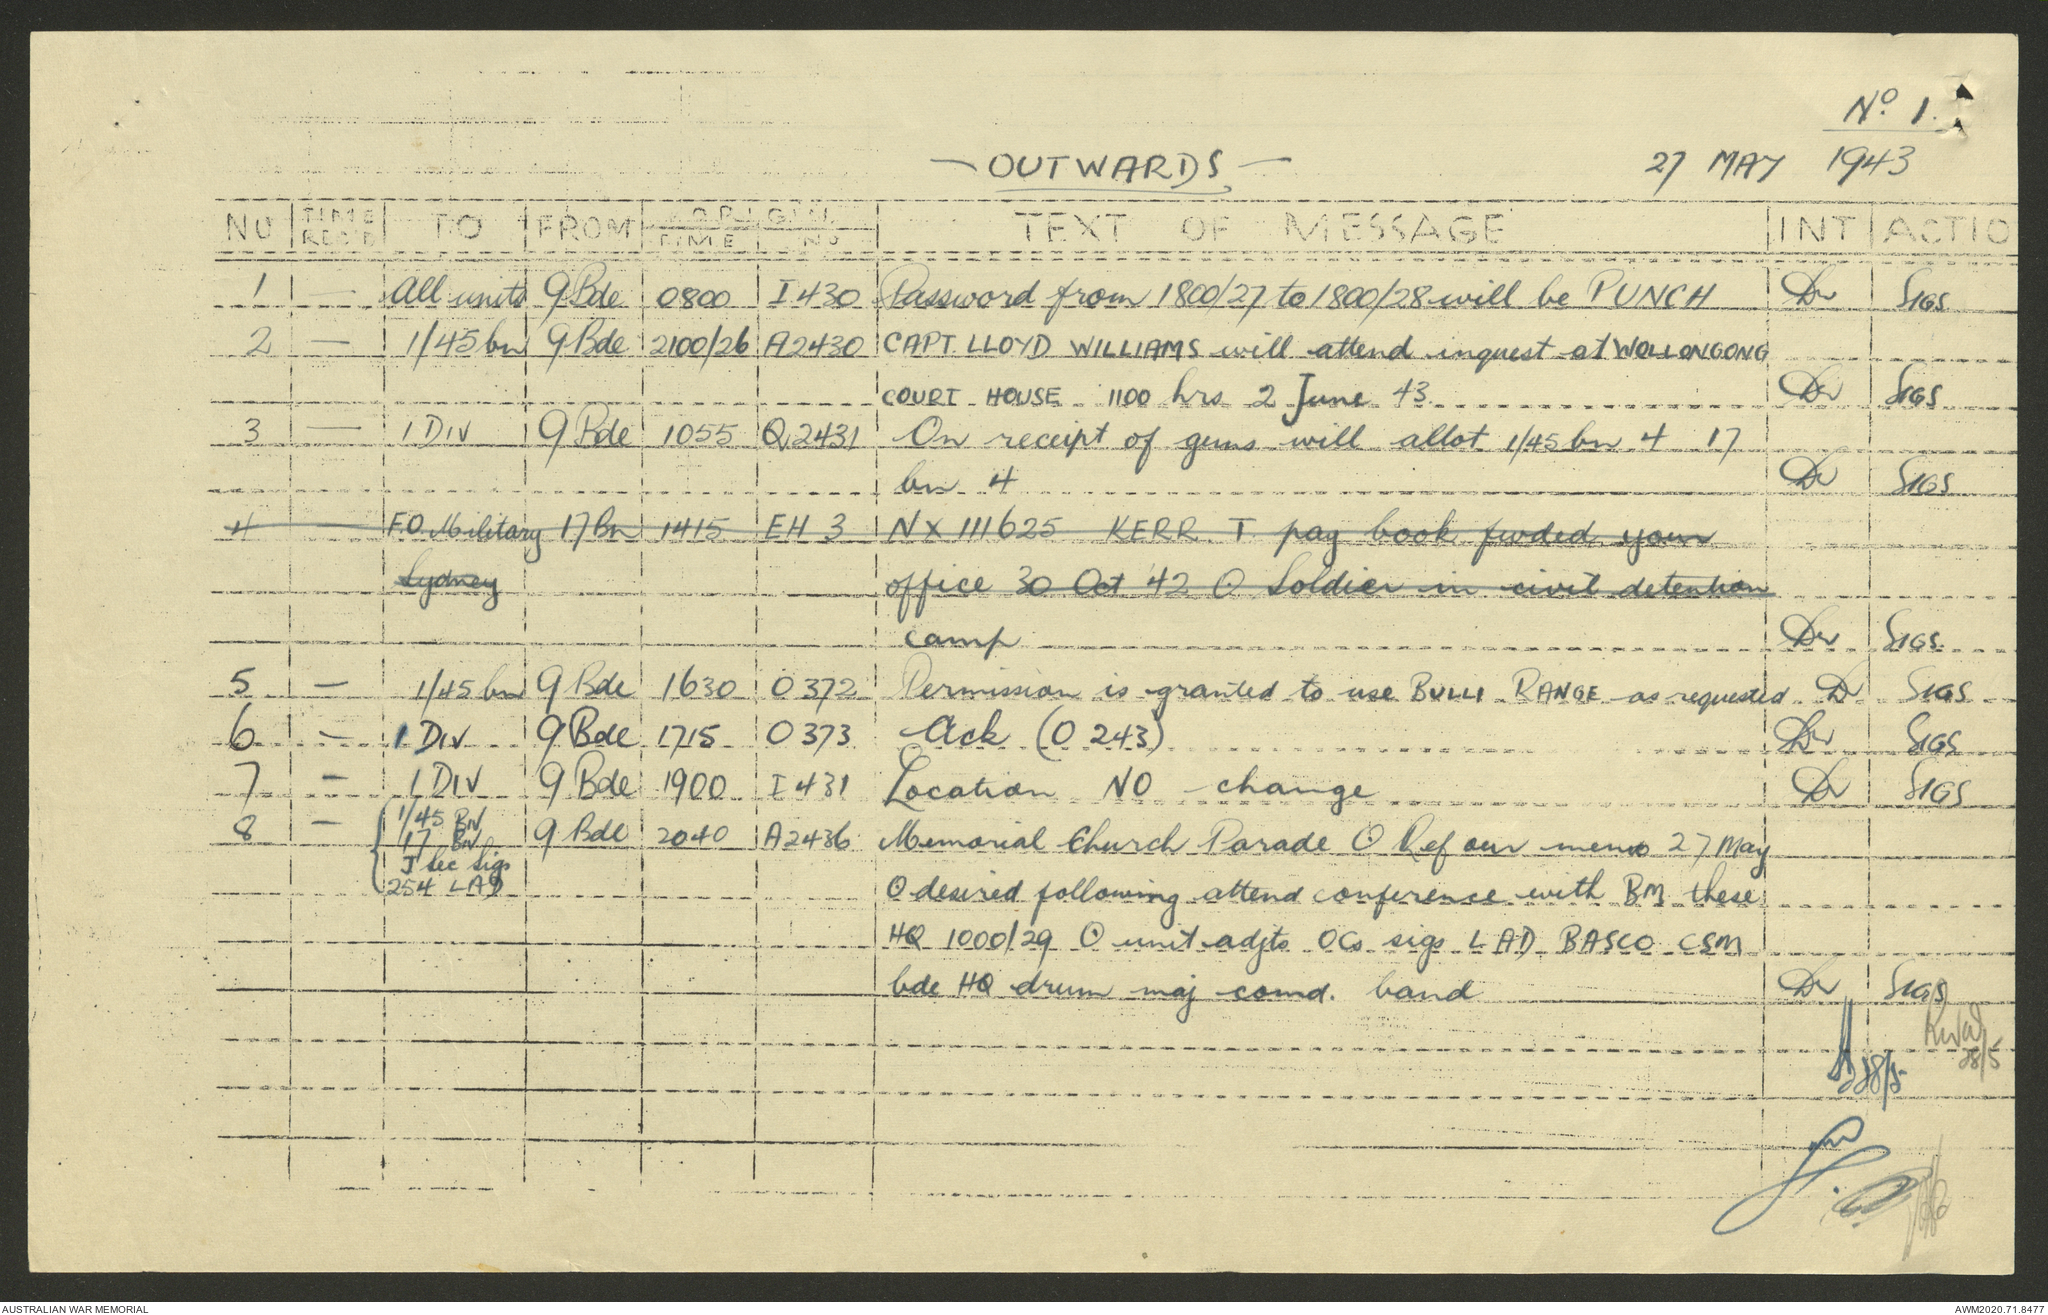 No. 1.
- OUTWARDS - 27 MAY 1943
NO TIME REC'D TO FROM ORIGIN TIME NO TEXT OF MESSAGE INT ACTIO
1 - All units 9 Bde 0800 I 430 Password from 1800/27 to 1800/28 will be PUNCH Dw SIGS
2 - 1/45 bn 9 Bde 2100/26 A2430 CAPT. LLOYD WILLIAMS will attend inquest at WOLLONGONG
COURT HOUSE 1100 hrs 2 June 43. Dw SIGS
3 - 1 DIV 9 Bde 1055 Q2431 On receipt of guns will allot 1/45 bn 4 17
bn 4 Dw SIGS
4 - F.O. Military 17 Bn 1415 EH 3 NX 111625 KERR T pay book fwded your
Sydney office 30 Oct '42 O Soldier in civil detention
camp Dw SIGS.
5 - 1/45 bn 9 Bde 1630 O 372 Permission is granted to use BULLI RANGE as requested D SIGS
6 - 1 DIV 9 Bde 1715 O 373 Ack (O 243) Dw SIGS
7 - 1 DIV 9 Bde 1900 I 431 Location NO change Dw SIGS
8 - 1/45 BN 9 Bde 2040 A2436 Memorial Church Parade O Ref our memo 27 May
17 BN
J Sec Sigs
254 LAD O desired following attend conference with BM these
HQ 1000/29 O unit adjts OCs sigs LAD BASCO CSM
bde HQ drum maj comd. band Dw SIGS
28/5
28/5
AUSTRALIAN WAR MEMORIAL AWM2020.71.8477